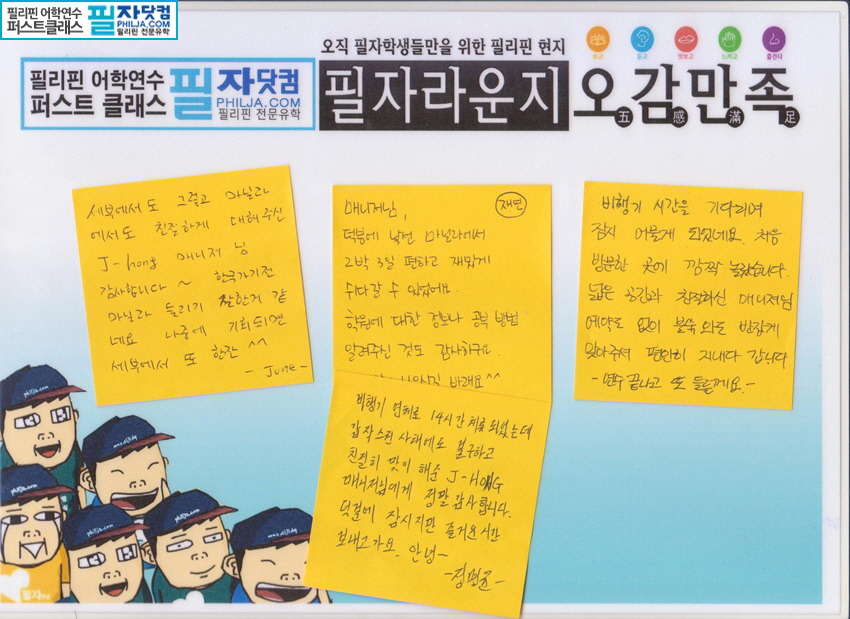 필리핀 어학연수
퍼스트클래스
필자닷컴
PHILJA.COM
필리핀 전문유학
오직 필자학생들만을 위한 필리핀 현지
보고 듣고 맛보고 느끼고 즐긴다
필리핀 어학연수
퍼스트 클래스
필자닷컴
PHILJA.COM
필리핀 전문유학
필자라운지
오감만족
五 感 滿 足
세부에서도 그렇고 마닐라
에서도 친절하게 대해주신
J-hong 매니저 님
감사합니다 ~ 한국가기전
마닐라 들리기 잘한거 같
네요 나중에 기회되면
세부에서 또 한잔 ^^
- June -
매니저님, 재연
덕분에 낯선 마닐라에서
2박 3일 편하고 재밌게
쉬다갈 수 있었어요.
학원에 대한 정보나 공부 방법
알려주신 것도 감사하구요.
바래요^^
비행기 연체로 14시간 체류 되었는데
갑작스런 사태에도 불구하고
친절히 맞이 해준 J-HONG
매니저님에게 정말 감사합니다.
덕분에 잠시지만 즐거운시간
보내고가요. 안녕~
비행기 시간을 기다리며
잠시 머물게 되었네요. 처음
방문한 곳에 깜짝 놀랐습니다.
넓은 공간과 친절하신 매니저님
예약도 없이 불쑥 와도 반갑게
맞아주셔 편안히 지내다 갑니다
- 연수 끝나고 또 들를께요. -
philja.com
philja.com
philja.com
필자